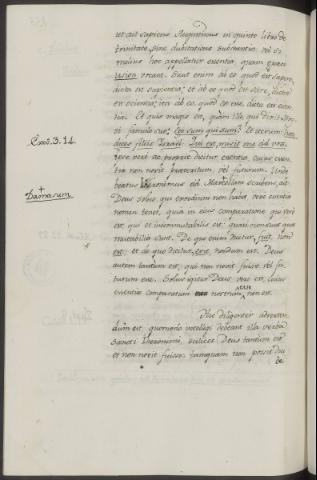 ut ait sapiens Augustinus in quinto libro de
trinitate, sine dubitatione substantia, vel si
melius hoc appelletur essentia, quam græci
usion vocant. Sicut enim ab eo quod est sapere,
dicta est sapientia; et ab eo quod est scire, dicta
est scientia; ita ab eo quod est esse, dicta est essen
tia. Et quis magis est, quam ille qui dixit Moy
si famulo suo: Ego sum qui sum? Et iterum: hæc
dices filiis Israel: Qui est misit me ad vos.
vere
non novit præteritum, vel futurum. Unde
beatus Hieronimus ad Marcellam scribens, ait:
Deus solus, qui exordium non habet, veræ essentiæ
nomen tenet, quia in eius comparatione qui vere
est, qui et incommutabilis est, quasi non sunt quæ
mutabilia sunt. De quo enim dicitur, fuit, non
est: et de quo dicitur, erit, nondum est. Deus
autem tantum est, qui non novit fuisse, vel fu
turum esse. Solus igitur Deus vere est, cuius
essentiæ comparatum esse nostrum, non est.
Exod. 3. 14.
Damasum
Hic diligenter adverten
dum est, quomodo intelligi debeant illa verba
Sancti Hieronimi, scilicet Deus tantum est
et non novit fuisse, tamquam non possit dici
de